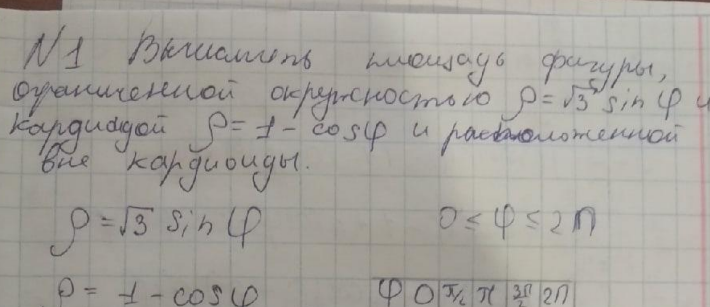 N1 Вычислить площадь фигуры,
ограниченной окружностью ρ=√3 sin φ и
кардиодой ρ=1-cosφ и расположенной
вне кардиоиды.
ρ=√3 sin φ 0≤φ≤2π
ρ= 1-cosφ φ 0 π/2 π 3π/2 2π